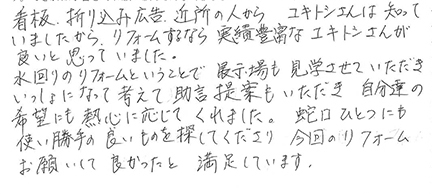 看板、折り込み広告、近所の人から ユキトシさんは知って
いましたから、リフォームするなら 実績豊富なユキトシさんが
良いと思っていました。
水回りのリフォームということで 展示場も見学させていただき
いっしょになって考えて、助言、提案もいただき 自分達の
希望にも熱心に応じてくれました。 蛇口ひとつにも
使い勝手の良いものを探してくださり 今回のリフォーム
お願いして良かったと 満足しています。